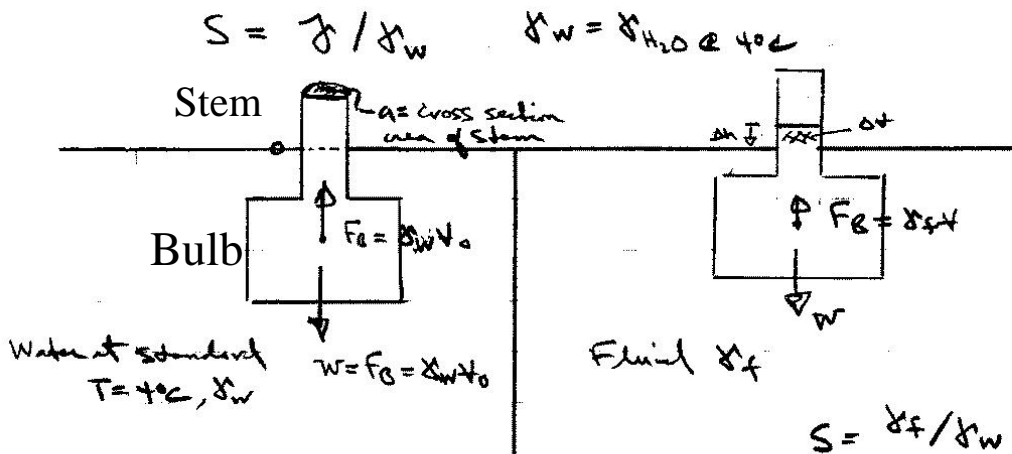 S = γ / γw
γw = γH₂O @ 4°C
Stem
a = cross section
area of stem
Δh
Δ∀
FB = γw∀₀
Bulb
FB = γf∀
W
Water at standard
T = 4°C, γw
W = FB = γw∀₀
Fluid γf
S = γf/γw